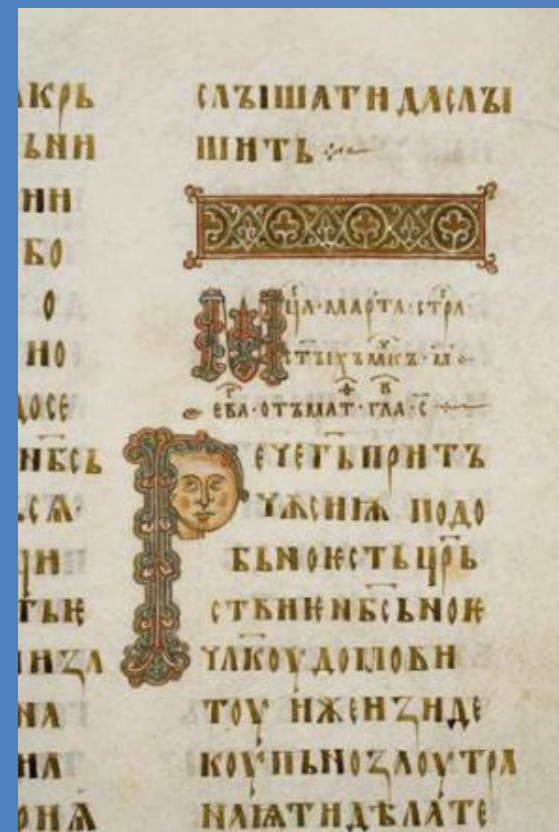 акрь
ьни
ни
бо
о
но
досе
нб҃сь
ьсѧ·
ци
нꙁа
на
на
слъıшатидаслъı
шить
мц҃а·марта·стра
стъıхъ м҃къ·м҃·
ева·отъмат·гла·с҃
речегьпритъ
чѫсиѭ подо
бьноѥстьцр҃ь
ствиѥнб҃сьноѥ
чл҃коудомови
тоу ижеиꙁиде
коупьноꙁаоутра
наѩтидѣлате